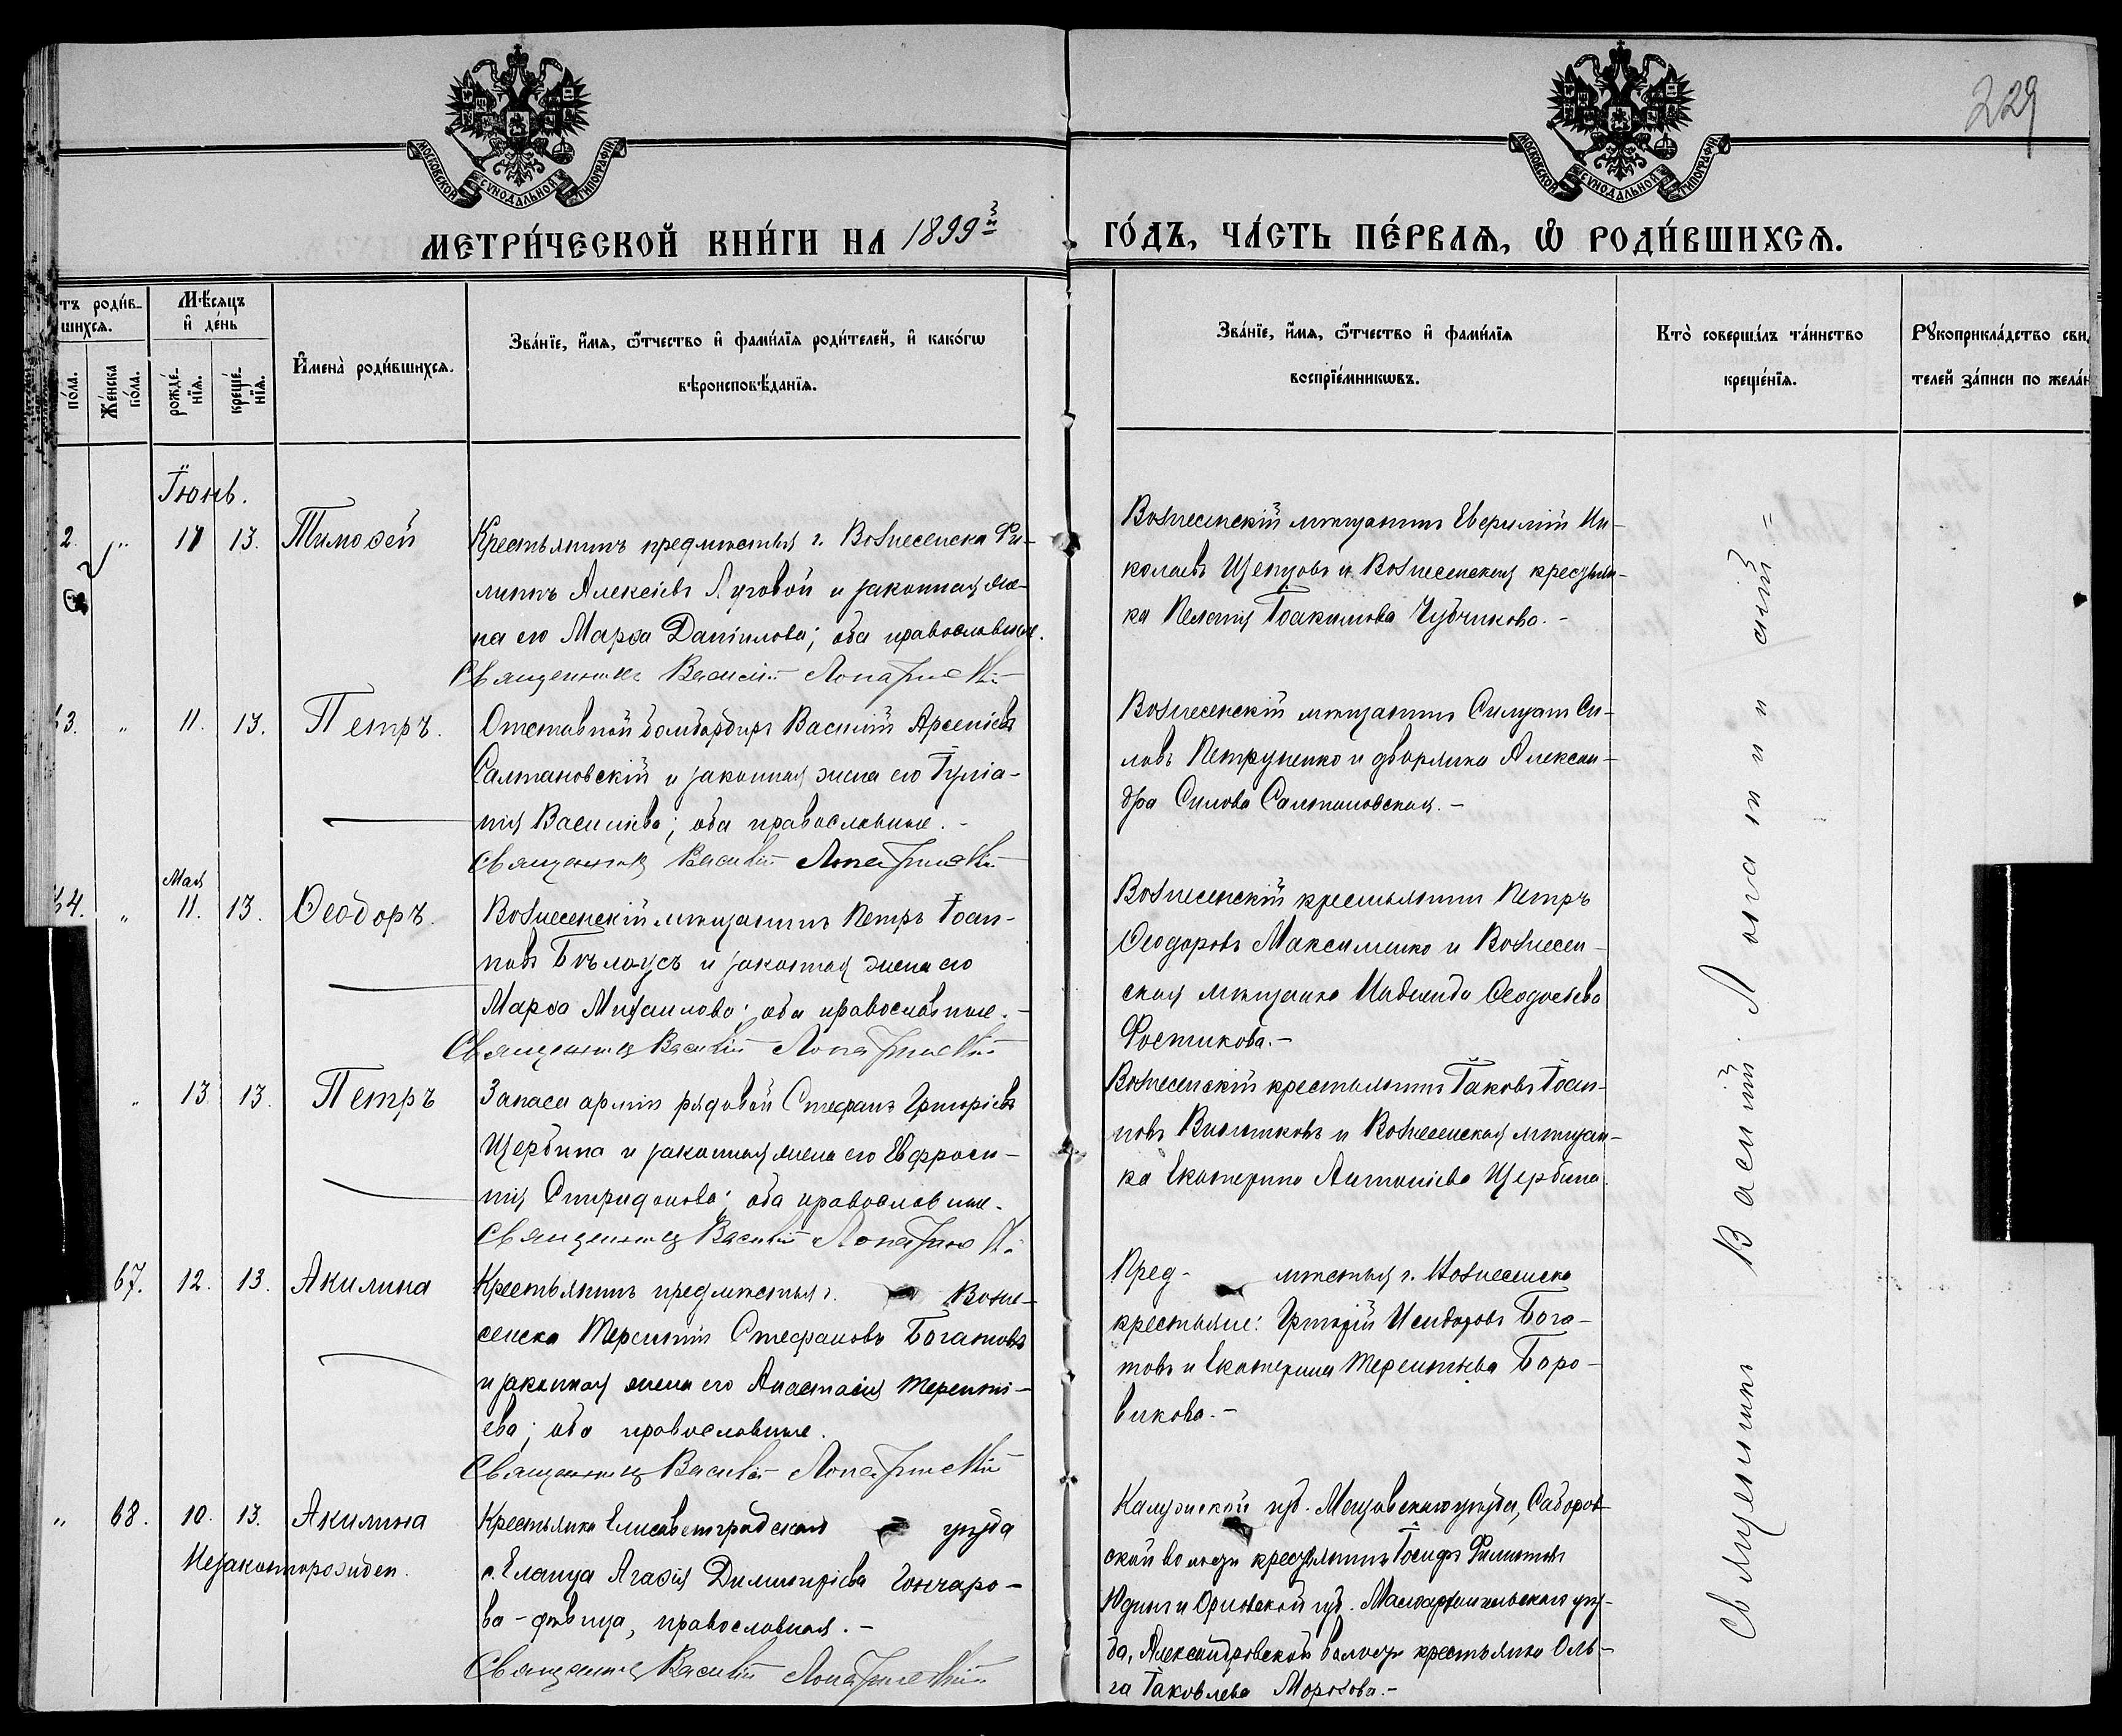 229
МОСКОВСКОЙ СѴНОДАЛЬНОЙ ТИПОГРАФІИ
МОСКОВСКОЙ СѴНОДАЛЬНОЙ ТИПОГРАФІИ
МЕТРИ́ЧЕСКОЙ КНИ́ГИ НА 1899й
ГО́ДЪ, ЧА́СТЬ ПЕ́РВАѦ, Ѽ РОДИ́ВШИХСѦ.
тъ роди́в-
шихсѧ.
по́ла.
Же́нска по́ла.
Мѣ́сѧцъ
и҆ де́нь
рожде́-
нїѧ.
креще́-
нїѧ.
И҆мена̀ роди́вшихсѧ.
Зва́нїе, и҆́мѧ, ѻ҆́тчество и҆ фами́лїѧ роди́телей, и҆ како́гѡ
вѣроисповѣ́данїѧ.
Зва́нїе, и҆́мѧ, ѻ҆́тчество и҆ фами́лїѧ
воспрїе́мникѡвъ.
Кто̀ соверша́лъ та́инство
креще́нїѧ.
Рꙋкоприкла́дство сви
телей за́писи по жела́н
Іюнь.
2. " 11 13. Тимоѳей
Крестьянинъ предмѣстья г. Вознесенска Фи-
липпъ Алексіевъ Луговой и законная же-
на его Марѳа Даніилова; оба православные.
Священникъ Василій Лопатинскій
Вознесенскій мѣщанинъ Ни-
колаевъ и Вознесенская крестьян-
ка Пелагія Іоакимова Чубчикова.-
33. " 11. 13. Петръ.
Отставной бомбардиръ Василій Арсеніевъ
Салтановскій и законная жена его Іуліа-
нія Василіева; оба православные.-
Священникъ Василій Лопатинскій
Вознесенскій мѣщанинъ Силуанъ Си-
ловъ Петруненко и дворянка Алексан-
дра Силова Салтановская.-
Мая
34. " 11. 13. Ѳеодоръ.
Вознесенскій мѣщанинъ Петръ Іоан-
новъ Бѣлоусъ и законная жена его
Марѳа Михаилова; оба православные.-
Священникъ Василій Лопатинскій
Вознесенскій крестьянинъ Петръ
Ѳеодоровъ Максименко и Вознесен-
ская мѣщанка Ѳеодосіева
Фостикова.-
" 13 13. Петръ
Запаса арміи рядовой Стефанъ Григоріевъ
Щербина и законная жена его Евфроси-
нія Спиридонова; оба православные.
Священникъ Василій Лопатинскій
Вознесенскій крестьянинъ Іаковъ Іоан-
новъ и Вознесенская мѣщан-
ка Екатерина Антоніева Щербина.
67. 12. 13. Акилина
Крестьянинъ предмѣстья г. Возне-
сенска Терентій Стефановъ Богатовъ
и законная жена его Анастасія Теренті-
ева; оба православные.
Священникъ Василій Лопатинскій
Пред- мѣстья г. Вознесенска
крестьяне: Григорій Исидоровъ Бога-
товъ и Екатерина Терентьева Боро-
викова.-
" 68. 10. 13. Акилина
Незаконнорожден.
Крестьянка Елисаветградскаго уѣзда
с. Еланца Агаѳія Димитріева Гончаро-
ва-дѣвица, православная.-
Священникъ Василій Лопатинскій
Калужской губ. Мещовскаго уѣзда,
ской волости крестьянинъ Іосифъ Филипповъ
Юдинъ и Орловской губ. Малоархангельскаго уѣз-
да, Александровской волости крестьянка Оль-
га Іаковлева Морозова.-
Священникъ Василій Лопатинскій =